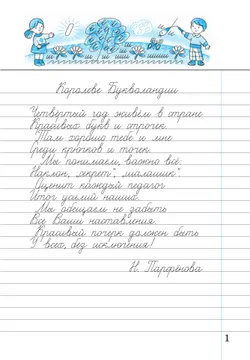 Королеве Буквландии
Четвёртый год живём в стране
Красивых букв и строчек.
Так хорошо тебе и мне
Среди крючков и точек.
Мы понимаем, важно всё:
Наклон, „секрет", „шалашик".
Оценит каждый педагог
Итог усилий наших.
Мы обещаем не забыть
Все Ваши наставления.
Красивый почерк должен быть
У всех, без исключения!
Н. Парфёнова
1